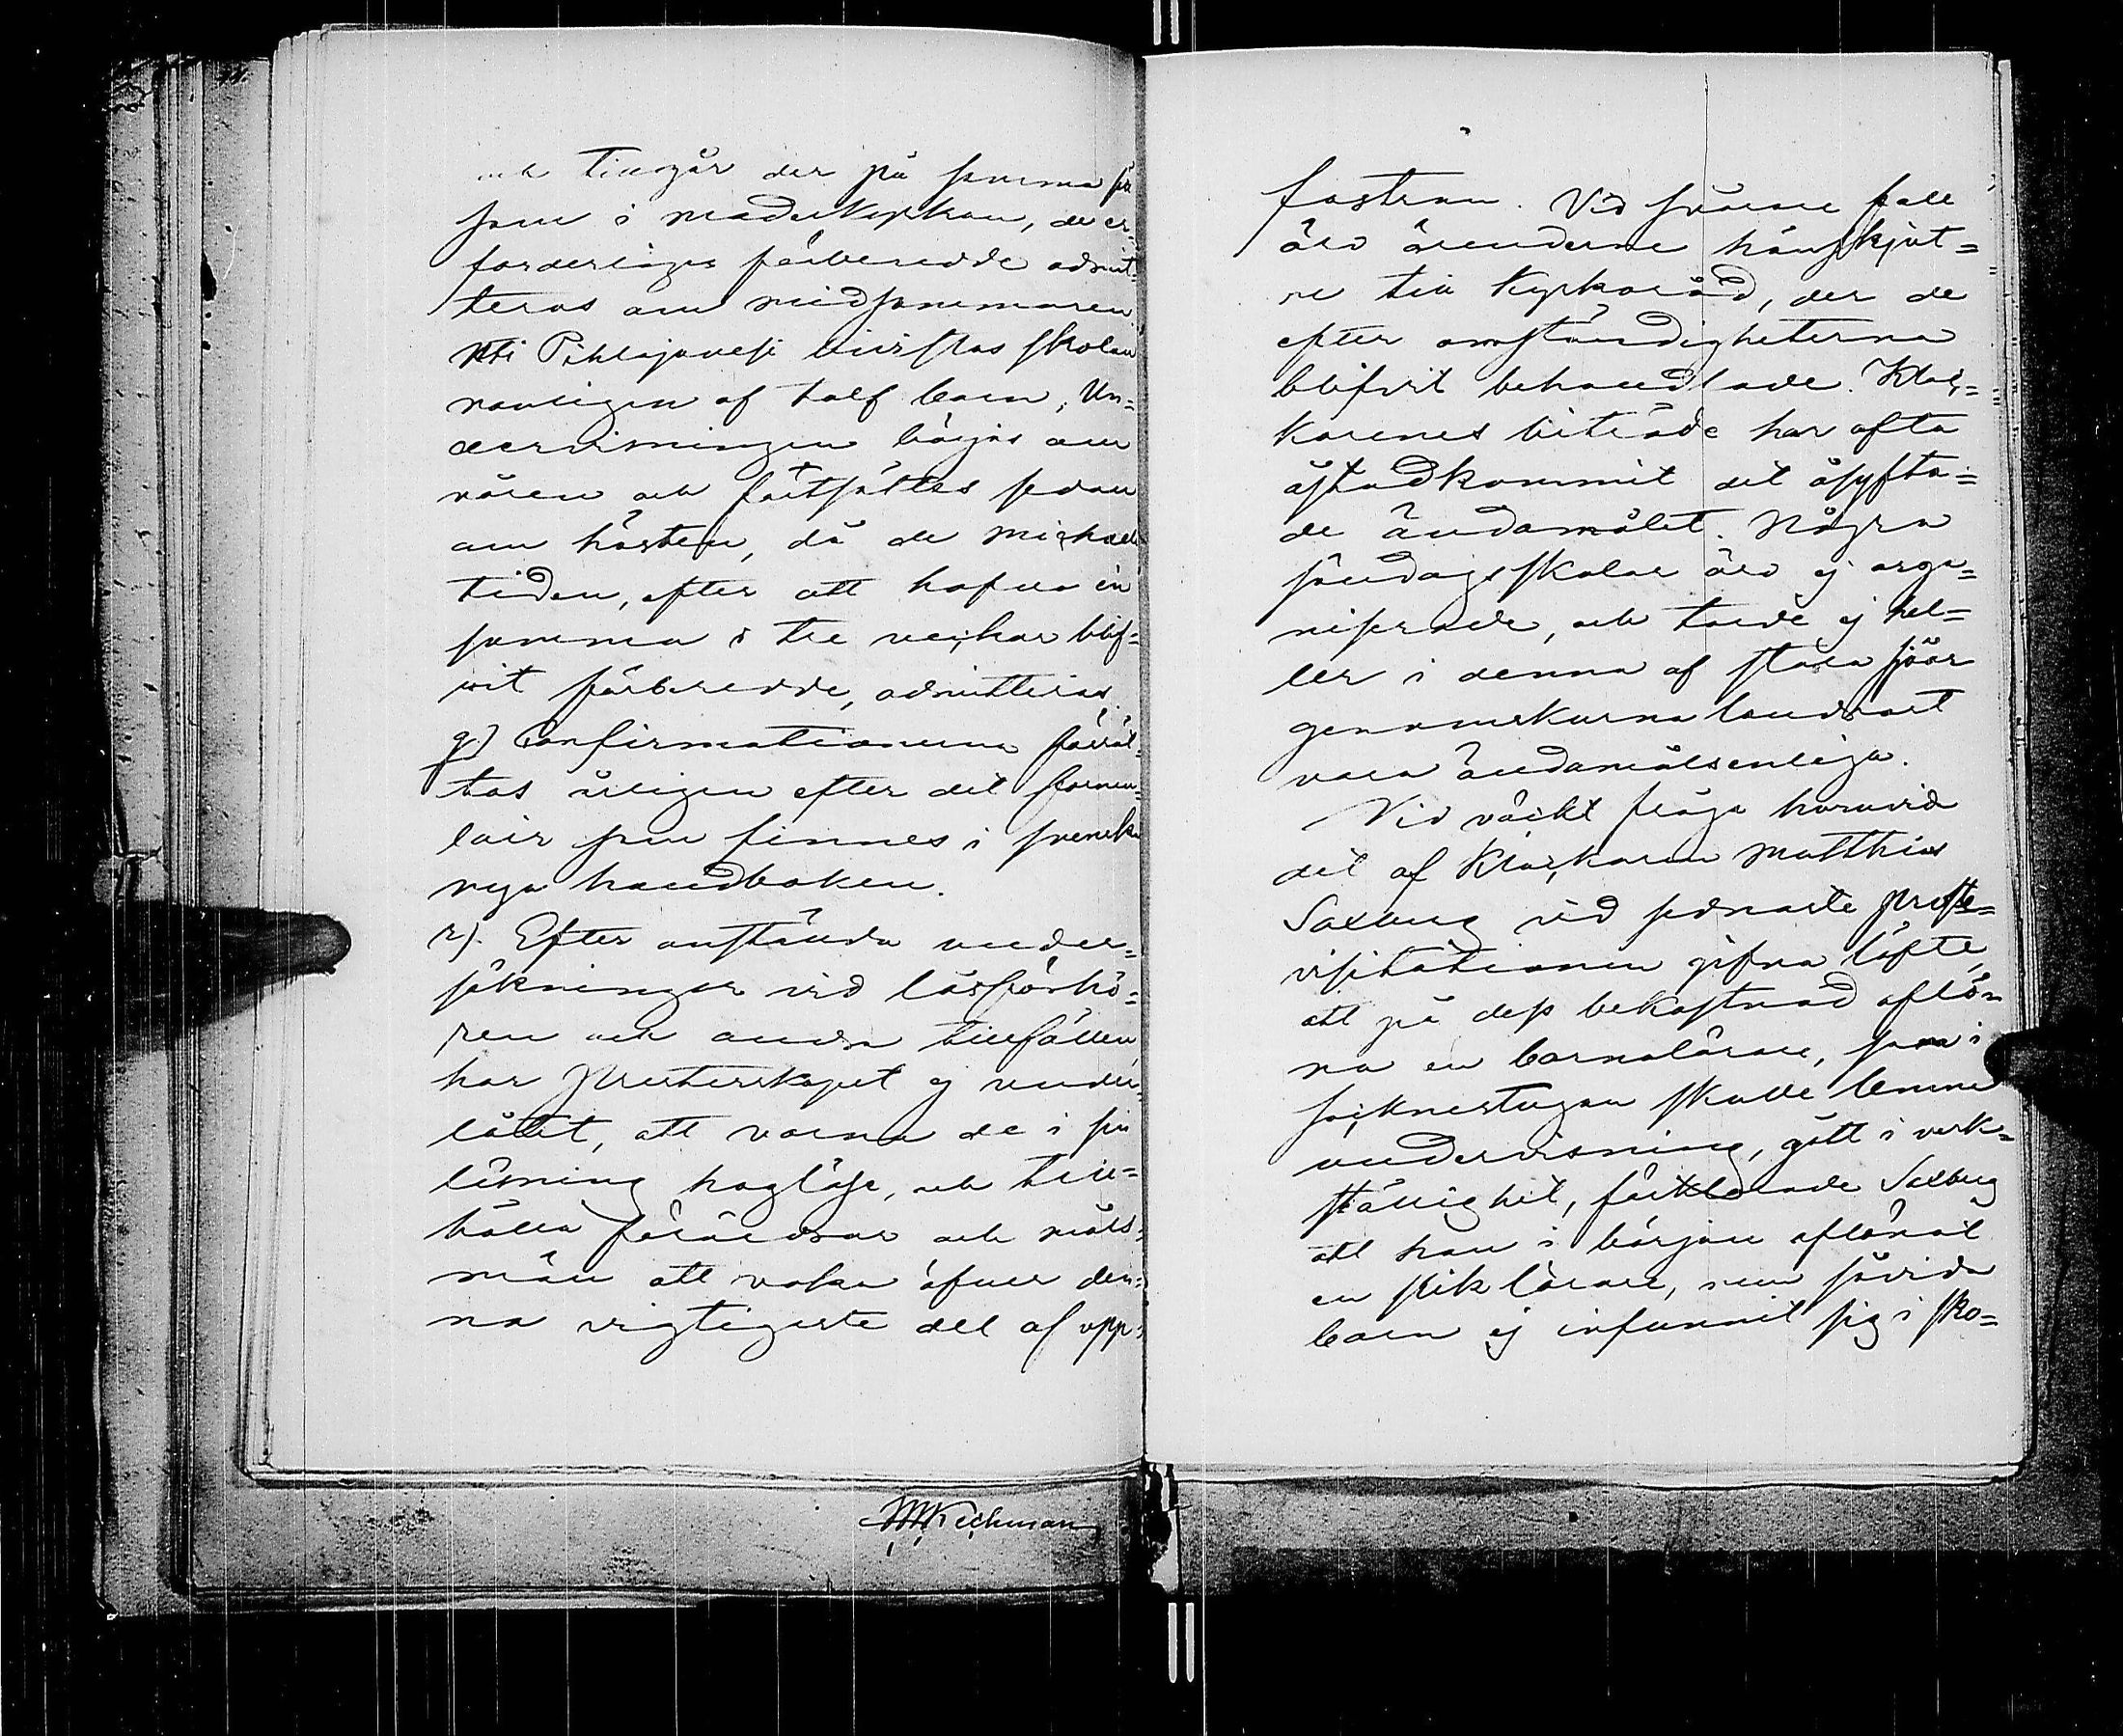 och tillgår der på samma sä
som i moderkyrkan, de er-
forderligen förberedde admit-
teras om midsommaren.
Uti Pihlajavesi bivistas skolan
vanligen af tolf barn; Un=
dervisningen börjas om
våren och fortsättes sedan
om hösten, då de michaeli
tiden, efter att hafva en
somma i tre veckor blif-
vit förberedde, admitteras.
q) Confirmationerna förrät-
tas årligen efter det formu-
lair som finnes i svenska
nya handboken.
r). Efter anstända under-
sökningar vid läsförhö-
ren och andra tillfällen,
har Presterskapet ej under-
låtit, att varna de i sin
läsning håglöse, och till=
hålla föräldrar och måls-
män att vaka öfver den-
na vigtigaste del af upp-
fostran. Vid svårare fall
äro ärenderne hänskjut=
ne till Kyrkoråd, der de
efter omständigheterna
blifvit behandlade. Kloc-
karenes biträde har ofta
åstadkommit det åsyfta=
de ändamålet. Några
söndagsskolor äro ej orga=
niserade, och torde ej hel=
ler i denna af stora sjöar
genomskurna landsort
vara ändamålsenliga.
Vid väckt fråga huruvida
det af Klockaren Matthias
Saxberg vid sednaste Prosts-
visitationen gifna löfte,
att på dess bekostnad aflön
na en barnalärare, som i
socknestugan skulle lemna
undervisning, gått i verk=
ställighet, förklarade Saxberg
att han i början aflönat
en slik lärare, men såvida
barn ej infunnit sig i sko=
Keckman